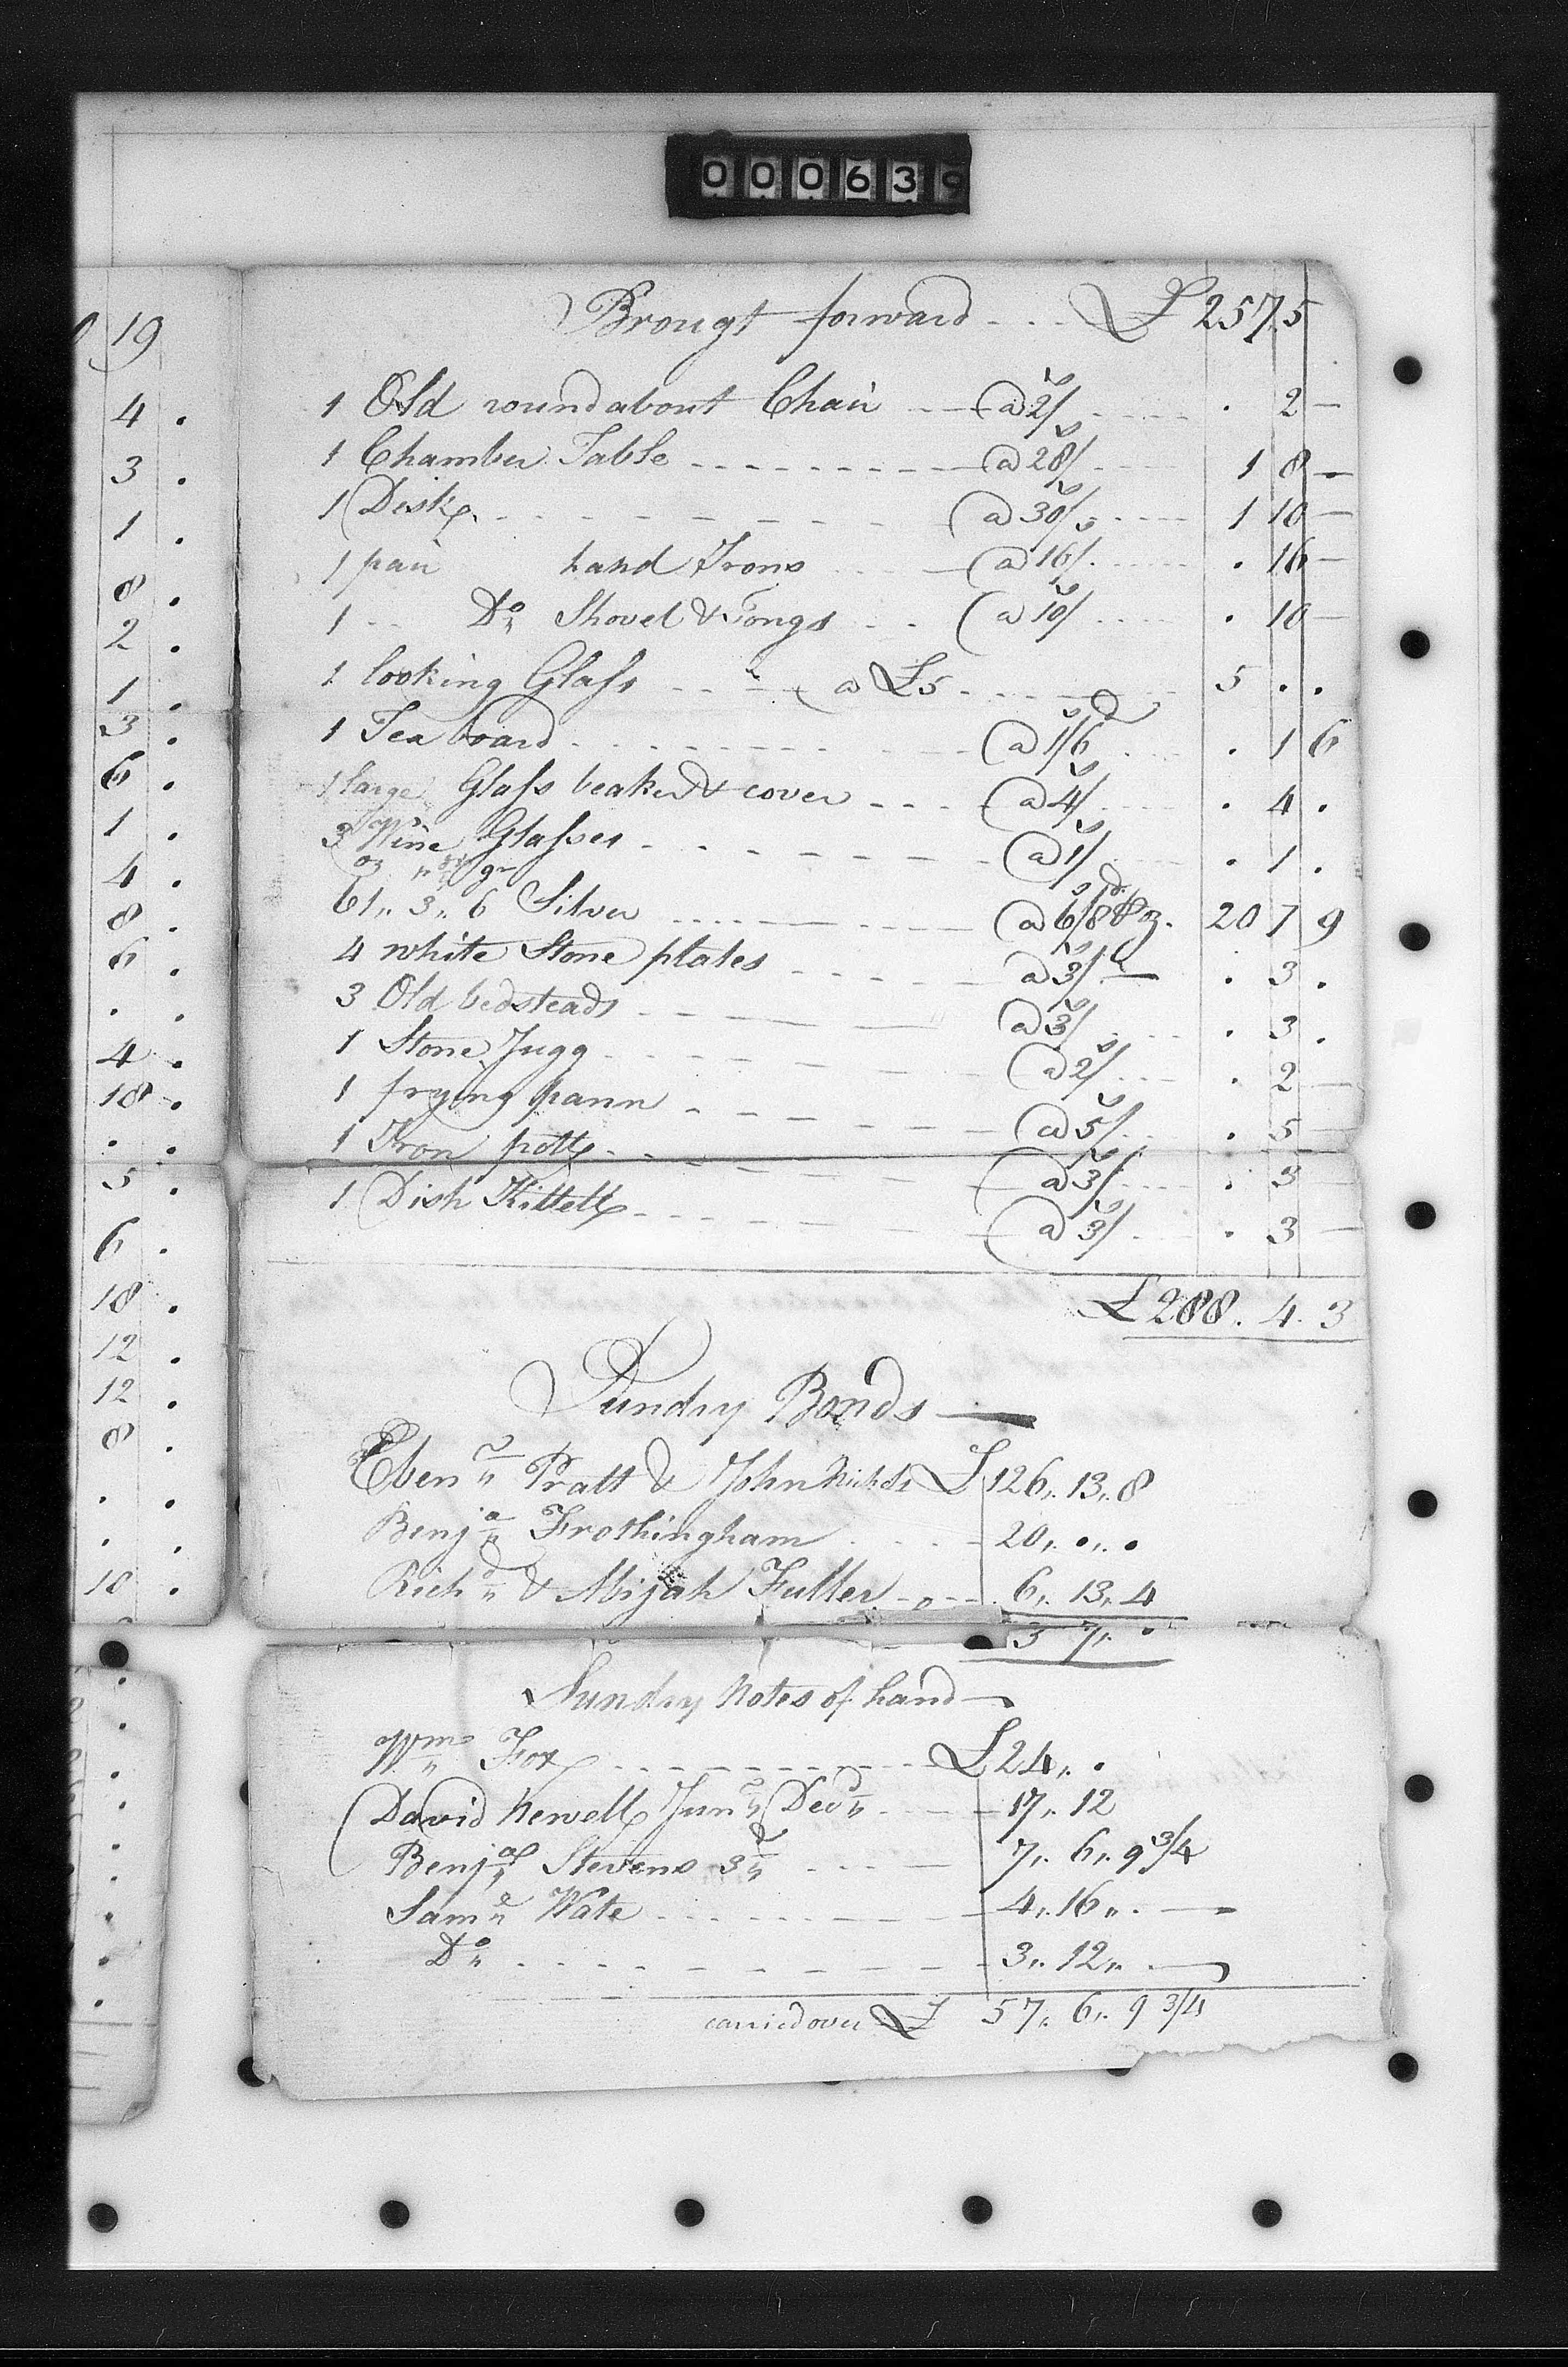 000639
19
4 .
3 .
1 .
8 .
2 .
1 .
3 .
6 .
1 .
4 .
8 .
6 .
. .
4 .
18 .
. .
5 .
6 .
18 .
12 .
12 .
8 .
. .
. .
10 .
Brougt forward - - - £ 257 5
1 Old roundabout Chair - - @ 2/ . 2 —
1 Chamber Table - - - @ 28/ 1 8 —
1 Desk - - - @ 30/ 1 10 —
1 pair hand Irons - - @ 16/ . 16 —
1 - - Do Shovel & Tongs - - @ 10/ . 10 —
1 looking Glass - - @ £5 - - 5 . .
1 Tea board - - - @ 1/6 . 1 6
1 large Glass beaker & cover - - - @ 4/ . 4 .
3 Wine Glasses - - - @ 1/ . 1 .
oz gr
61,, 3,, 6 Silver - - - @ 6/8 ℔ oz. 20 7 9
4 white Stone plates - - - @ 3/ — . 3 .
3 Old bedsteads - - - @ 3/ . 3 .
1 Stone Jugg - - - @ 2/ . 2 —
1 frying pann - - - @ 5/ . 5 —
1 Iron pott - - - @ 3/ . 3 —
1 Dish Kittell - - - @ 3/ . 3 —
£ 288. 4. 3
Sundry Bonds —
Ebenr Pratt & John Nichols £ 126,, 13,, 8
Benja Frothingham - - - 20,, .,, .
Richd & Abijah Fuller - - - 6,, 13,, 4
3 7,, .
Sundry Notes of hand —
Wm Fox - - - £ 24,, .
David Newell Junr Decd - - - 17,, 12
Benja Stevens 3d - - - 7,, 6,, 9 3/4
Saml Wate - - - 4,, 16,, . —
Do - - - 3,, 12,, . —
carried over £ 57,, 6,, 9 3/4